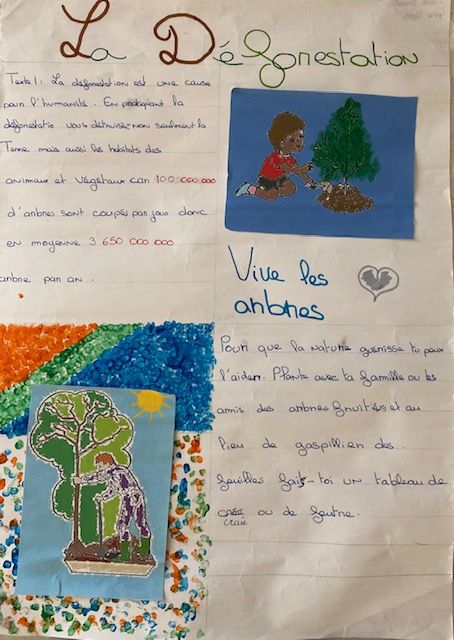 La Déforestation
Texte 1: La déforestation est une cause
pour l'humanité. En pratiquant la
déforestatio vous détruisez non seulment la
Terre mais aussi les habitats des
animaux et végétaux car 100 000,000
d'arbres sont coupés par jour donc
en moyenne 3 650 000 000
arbre par an.
Vive les
arbres
Pour que la Nature guérisse tu peux
l'aider. Plante avec ta famille ou tes
amis des arbres fruitiers et au
lieu de gaspiller des
feuilles fais-toi un tableau de
craie ou de feutre.